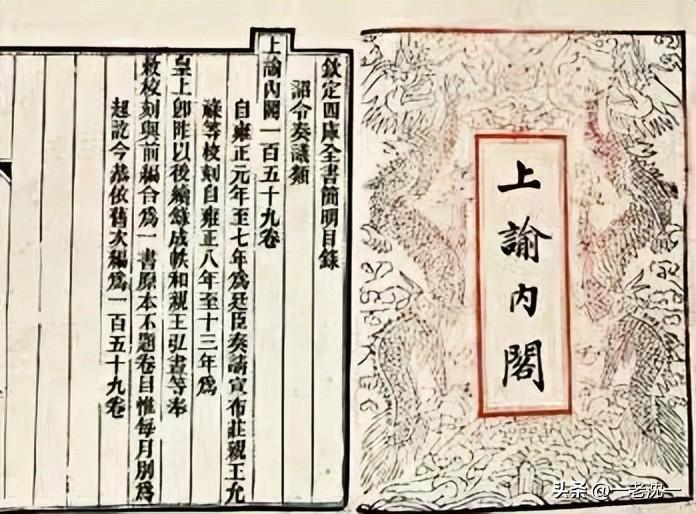 上諭內閣
欽定四庫全書簡明目錄
詔令奏議類
上諭內閣一百五十九卷
自雍正元年至七年為廷臣奏請宣布莊親王允
祿等校刻自雍正八年至十三年為
皇上即阼以後續錄成帙和親王弘晝等奉
敕校刻與前編合為一書原本不題卷目惟每月別為
起訖今恭依舊次編為一百五十九卷
头条 @一老沈一